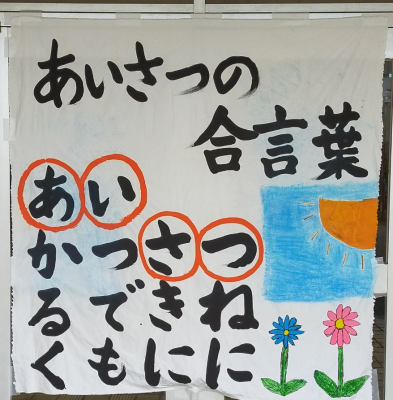 あいさつの
合言葉
あかるく
いつでも
さきに
つねに